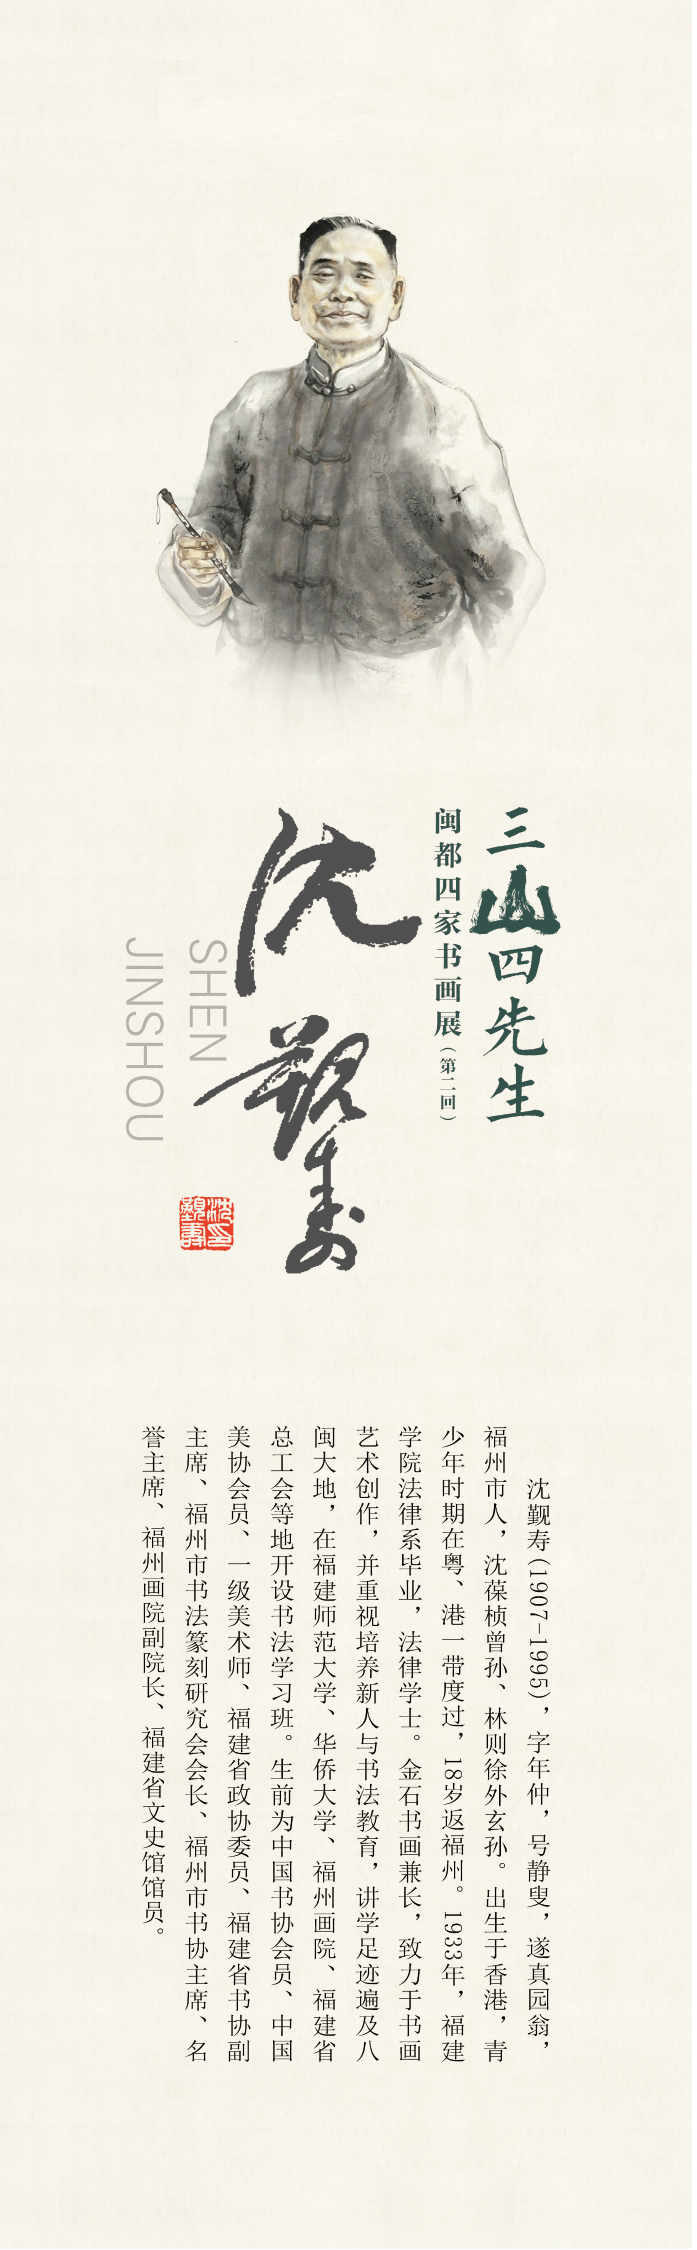 三山四先生
闽都四家书画展(第二回)
沈觐寿
SHEN
JINSHOU
沈觐寿(1907-1995)，字年仲，号静叟，遂真园翁，
福州市人，沈葆桢曾孙、林则徐外玄孙。出生于香港，青
少年时期在粤、港一带度过，18岁返福州。1933年，福建
学院法律系毕业，法律学士。金石书画兼长，致力于书画
艺术创作，并重视培养新人与书法教育，讲学足迹遍及八
闽大地，在福建师范大学、华侨大学、福州画院、福建省
总工会等地开设书法学习班。生前为中国书协会员、中国
美协会员、一级美术师、福建省政协委员、福建省书协副
主席、福州市书法篆刻研究会会长、福州市书协主席、名
誉主席、福州画院副院长、福建省文史馆馆员。
沈觐寿印